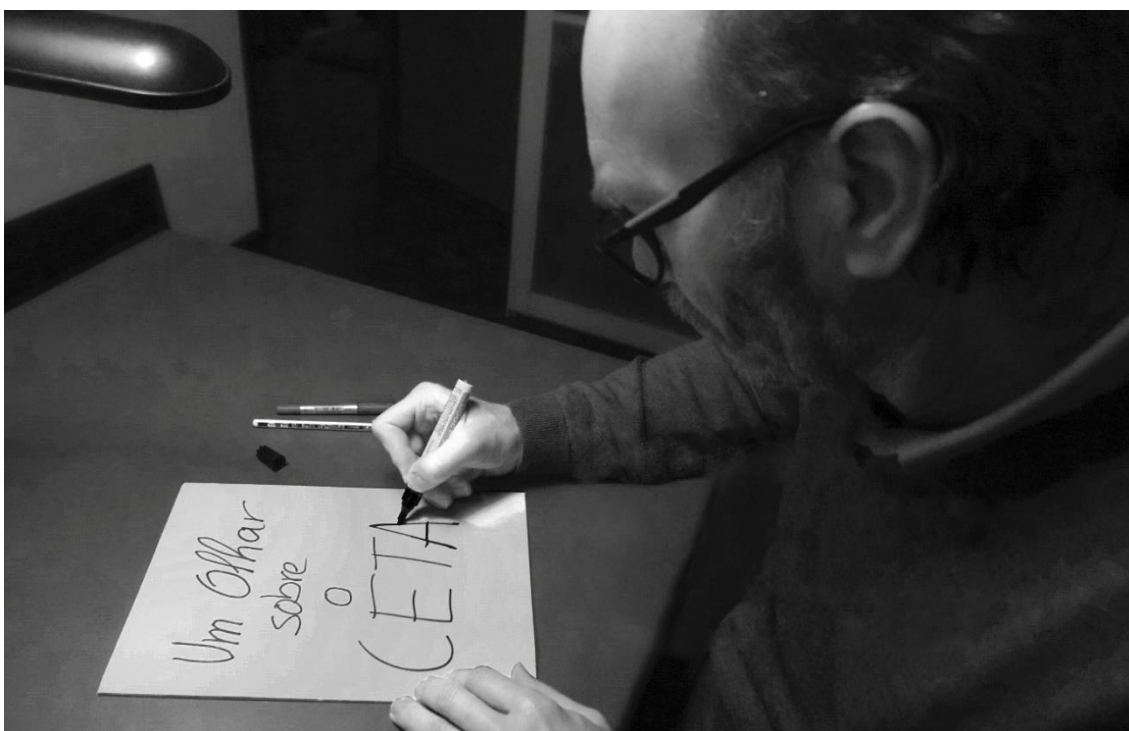 Um Olhar
sobre
o
CETA